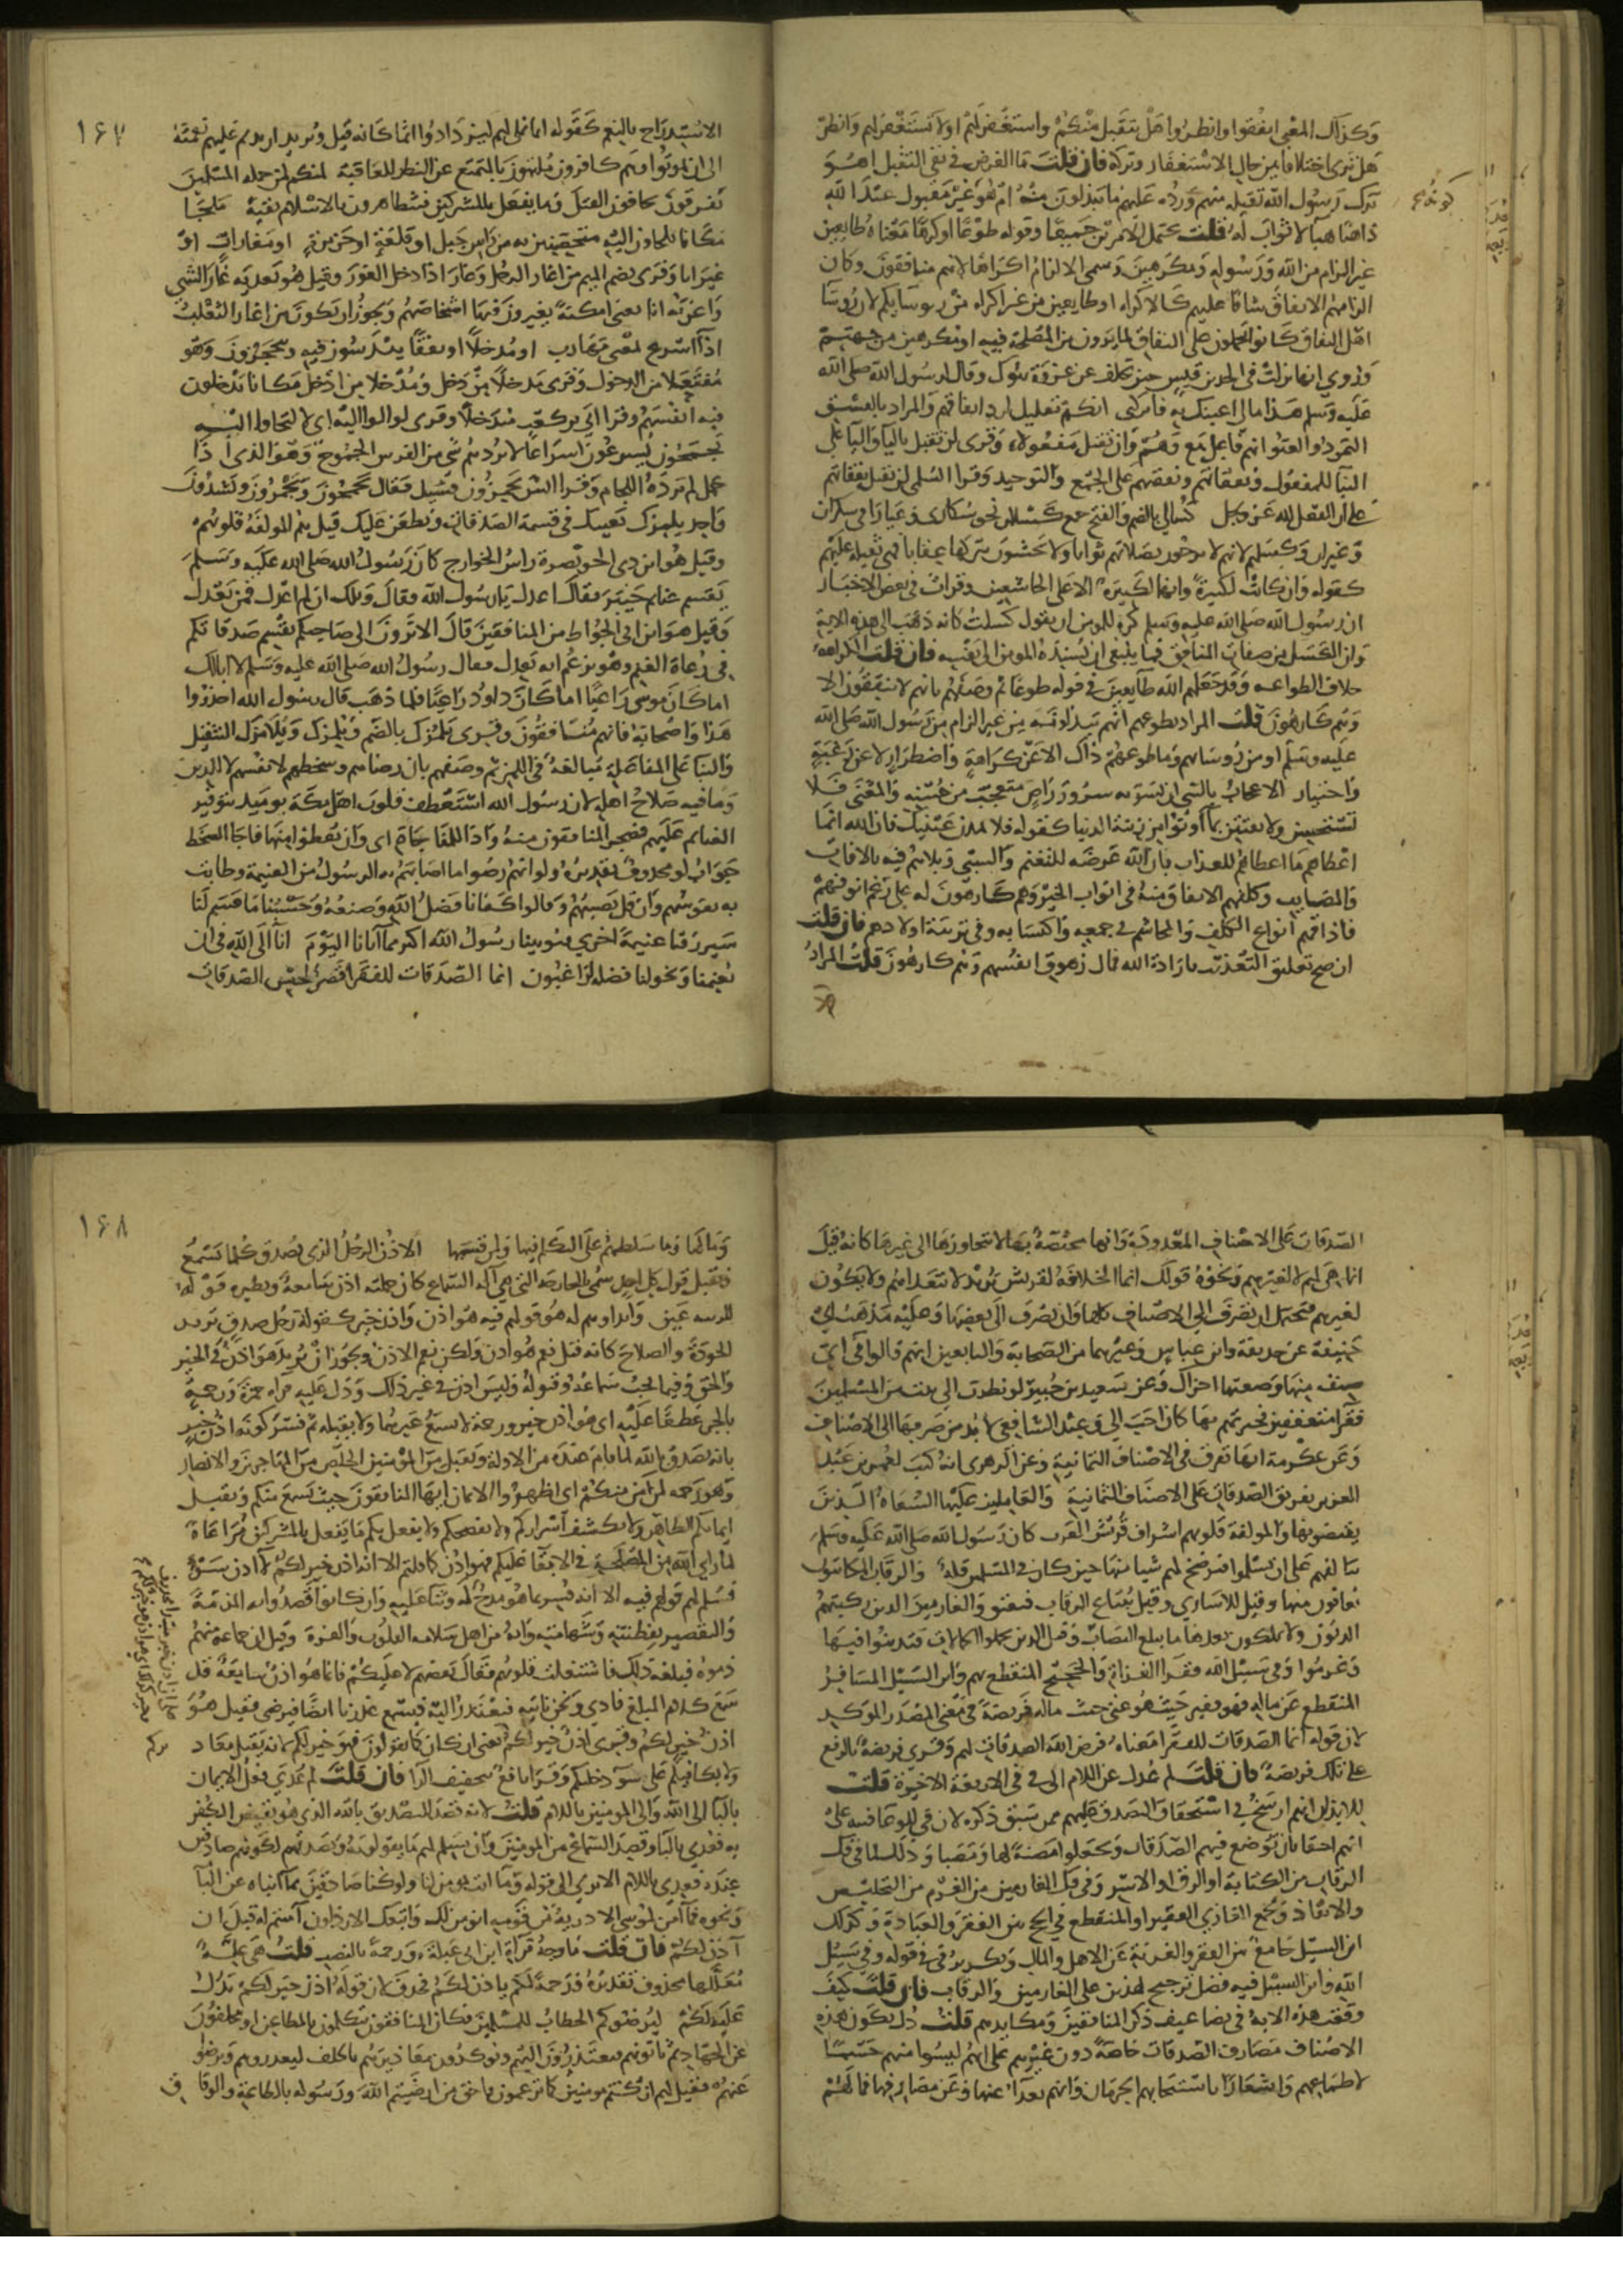 وكذلك المعنى انفقوا وانظروا هل يتقبل منكم واستغفر لهم او لا تستغفر لهم وانظر
هل ترى اختلافا بين حال الاستغفار وتركه فان قلت ما الغرض في نفي التقبل اهو
ترك رسول الله تقبله منهم ورده عليهم ما يبذلون منه ام هو غير مقبول عند الله
ذاهبا هباء لا ثواب له قلت يحتمل الامرين جميعا وقوله طوعا او كرها معناه طايعين
غير الزام من الله ورسوله ومكرهين وسمي الالزام اكراها لانهم منافقون وكان
الزامهم الانفاق شاقا عليهم كالاكراه او طايعين من غير اكراه من روسايكم لان روسا
اهل النفاق كانوا يحملون على النفاق لما يرون من المصلحة فيه او مكرهين من جهتهم
وروي انها نزلت في الجد بن قيس حين تخلف عن غزوة تبوك وقال لرسول الله صلى الله
عليه وسلم هذا مالي اعينك به فاتركني انكم تعليل لرد انفاقهم والمراد بالفسق
التمرد والعتو انهم فاعل منع وهم وان تقبل مفعولاه وقرى ان تقبل بالتا واليا على
البنا للمفعول ونفقاتهم ونفقتهم على الجمع والتوحيد وقرا السلمي ان يقبل نفقاتهم
على ان الفعل لله عز وجل كسالى بالضم والفتح جمع كسلان نحو سكارى وغيارى في سكران
وغيران وكسلهم لانهم لا يرجون بصلاتهم ثوابا ولا يخشون بتركها عقابا فهي ثقيلة عليهم
كقوله وان كانت لكبيرة وانها لكبيرة الا على الخاشعين وقرات في بعض الاخبار
ان رسول الله صلى الله عليه وسلم كره للمومن ان يقول كسلت كانه ذهب الى هذه الاية
وان الكسل من صفات المنافق فما ينبغي ان يسنده المومن الى نفسه فان قلت الكراهة
خلاف الطواعية وقد جعلهم الله طايعين في قوله طوعا ثم وصفهم بانهم لا ينفقون الا
وهم كارهون قلت المراد بطوعهم انهم يبذلونه من غير الزام من رسول الله صلى الله
عليه وسلم او من روسايهم وما طوعهم ذاك الا عن كراهة واضطرار لا عن رغبة
واختيار الاعجاب بالشي ان تسر به سرور راض متعجب من حسنه والمعنى فلا
تستحسن ولا تفتتن بما اوتوا من زينة الدنيا كقوله فلا تمدن عينيك فان الله انما
اعطاهم ما اعطاهم للعذاب بان الله عرضه للتغنم والسبي وبلاهم فيه بالافات
والمصايب وكلفهم الانفاق منه في ابواب الخير وهم كارهون له على رغم انوفهم
فاذاقهم انواع الكلف والمجاشم في جمعه واكتسابه وفي تربية اولادهم فان قلت
ان صح تعليق التعذيب بارادة الله فما بال زهوق انفسهم وهم كارهون قلت المراد
١٦٧
الاستدراج بالنعم كقوله انما نملي لهم ليزدادوا اثما كانه قيل ويريد ان يديم عليهم نعمته
الى ان يموتوا وهم كافرون ملتهون بالتمتع عن النظر للعاقبة لمنكم لمن جملة المسلمين
يفرقون يخافون القتل وما يفعل بالمشركين فيتظاهرون بالاسلام تقية ملجا
مكانا يلجاون اليه متحصنين به من راس جبل او قلعة او جزيرة او مغارات او
غيرانا وقرى بضم الميم من اغار الرجل وغار اذا دخل الغور وقيل هو تعدية غار الشي
واغرته انا يعني امكنة يغيرون فيها اشخاصهم ويجوز ان يكون من اغار الثعلب
اذا اسرع لمعنى مهارب او مدخلا او نفقا يندسون فيه وينجحرون وهو
مفتعل من الدخول وقرى مدخلا من دخل ومدخلا من ادخل مكانا يدخلون
فيه انفسهم وقرا ابي بن كعب مندخلا وقرى لوالوا اليه اي لالتجاوا اليه
يجمحون يسرعون اسراعا لا يردهم شي من الفرس الجموح وهو الذي اذا
حمل لم يرده اللجام وقرا انس يجمزون فسئل فقال يجمحون ويجمزون ويشدون
واحد يلمزك يعيبك في قسمة الصدقات ويطعن عليك قيل هم المولفة قلوبهم
وقيل هو ابن ذي الخويصرة راس الخوارج كان رسول الله صلى الله عليه وسلم
يقسم غنايم حنين فقال اعدل يا رسول الله فقال ويلك ان لم اعدل فمن يعدل
وقيل هو ابن ابي الجواظ من المنافقين قال الا ترون الى صاحبكم يقسم صدقاتكم
في رعاة الغنم وهو يزعم انه يعدل فقال رسول الله صلى الله عليه وسلم لا ابا لك
اما كان موسى راعيا اما كان داود راعيا فلما ذهب قال رسول الله احذروا
هذا واصحابه فانهم منافقون وقرى يلمزك بالضم ويلمزك ويلامزك التثقيل
والبنا على المفاعلة مبالغة في اللمز ثم وصفهم بان رضاهم وسخطهم لانفسهم لا للدين
وما فيه صلاح اهله لان رسول الله استعطف قلوب اهل مكة يوميذ بتوفير
الغنايم عليهم فضجر المنافقون منه واذا للمفاجاة اي وان لم يعطوا منها فاجاوا السخط
جواب لو محذوف تقديره ولو انهم رضوا ما اصابهم به الرسول من الغنيمة وطابت
به نفوسهم وان قل نصيبهم وقالوا كفانا فضل الله وصنعه وحسبنا ما قسم لنا
سيرزقنا غنيمة اخرى فيوتينا رسول الله اكثر مما اتانا اليوم انا الى الله في ان
يغنمنا ويخولنا فضله لراغبون انما الصدقات للفقراء قصر لجنس الصدقات
الصدقات على الاصناف المعدودة وانها مختصة بها لا تتجاوزها الى غيرها كانه قيل
انما هي لهم لا لغيرهم ونحوه قولك انما الخلافة لقريش تريد لا تتعداهم ولا يكون
لغيرهم فيحتمل ان تصرف الى الاصناف كلها وان تصرف الى بعضها وعليه مذهب ابي
حنيفة عن حذيفة وابن عباس وغيرهما من الصحابة والتابعين انهم قالوا في اي
صنف منها وضعتها اجزاك وعن سعيد بن جبير لو نظرت الى اهل بيت من المسلمين
فقرا متعففين فجبرتهم بها كان احب الي وعند الشافعي لا بد من صرفها الى الاصناف
وعن عكرمة انها تفرق في الاصناف الثمانية وعن الزهري انه كتب لعمر بن عبد
العزيز تفريق الصدقات على الاصناف الثمانية والعاملين عليها السعاة الذين
يقبضونها والمولفة قلوبهم اشراف قريش العرب كان رسول الله صلى الله عليه وسلم
يتالفهم على ان يسلموا فيرضخ لهم شيا منها حين كان في المسلمين قلة والرقاب المكاتبون
يعانون منها وقيل للاسارى وقيل يبتاع الرقاب فتعتق والغارمين الذين ركبتهم
الديون ولا يملكون بعدها ما يبلغ النصاب وقيل الذين تحملوا الحمالات فتدينوا فيها
وغرموا وفي سبيل الله فقرا الغزاة والحجيج المنقطع بهم وابن السبيل المسافر
المنقطع عن ماله فهو فقير حيث هو غني حيث ماله فريضة في معنى المصدر الموكد
لان قوله انما الصدقات للفقرا معناه فرض الله الصدقات لهم وقرى فريضة بالرفع
على تلك فريضة فان قلت لم عدل عن اللام الى في في الاربعة الاخيرة قلت
للايذان انهم ارسخ في استحقاق التصدق عليهم ممن سبق ذكره لان في للوعا فنبه على
انهم احقا بان توضع فيهم الصدقات ويجعلوا مظنة لها ومصبا وذلك لما في فك
الرقاب من الكتابة او الرق او الاسر وفي فك الغارمين من الغرم من التخليص
والانقاذ وجمع الغازي الفقير او المنقطع في الحج بين الفقر والعبادة وكذلك
ابن السبيل جامع بين الفقر والغربة عن الاهل والمال وتكرير في في قوله وفي سبيل
الله وابن السبيل فيه فضل ترجيح لهذين على الغارمين والرقاب فان قلت كيف
وقعت هذه الاية في تضاعيف ذكر المنافقين ومكايدهم قلت دل بكون هذه
الاصناف مصارف الصدقات خاصة دون غيرهم على انهم ليسوا منهم حسما
لاطماعهم واشعارا باستيجابهم الحرمان وانهم بعدا عنها وعن مصارفها فما لهم
١٦٨
وما لها وما سلطهم على التكلم فيها ولمز قسمها الاذن الرجل الذي يصدق كلما يسمع
ويقبل قول كل احد سمي بالجارحة التي هي آلة السماع كان جملته اذن سامعة ونظيره قولهم
للربيه عين وايذاوهم له هو قولهم فيه هو اذن واذن خير كقولك رجل صدق تريد
الجودة والصلاح كانه قيل نعم هو اذن ولكن نعم الاذن ويجوز ان يريد هو اذن في الخير
والحق وفيما يجب سماعه وقبوله وليس باذن في غير ذلك ودل عليه قراة حمزة ورحمة
بالجر عطفا عليه اي هو اذن خير ورحمة لا يسمع غيرهما ولا يقبله ثم فسر كونه اذن خير
بانه يصدق بالله لما قام عنده من الادلة ويقبل من المومنين الخلص من المهاجرين والانصار
وهو رحمة لمن آمن منكم اي اظهروا الايمان ايها المنافقون حيث يسمع منكم ويقبل
ايمانكم الظاهر ولا يكشف اسراركم ولا يفضحكم ولا يفعل بكم ما يفعل بالمشركين مراعاة
لما راى الله من المصلحة في الابقا عليكم فهو اذن كما قلتم الا انه اذن خير لكم لا اذن سوء
فسلم لهم قولهم فيه الا انه فسر بما هو مدح له وثنا عليه وان كانوا قصدوا به المذمة
والتقصير بفطنته وشهامته وانه من اهل سلامة القلوب والغرة وقيل ان جماعة منهم
ذموه فبلغه ذلك فاشتغلت قلوبهم فقال بعضهم لا عليكم فانما هو اذن سامعة قد
سمع كلام المبلغ فاذي ونحن ناتيه فنعتذر اليه فيسمع عذرنا ايضا فيرضى فقيل هو
اذن خير لكم وقرى اذن خير لكم يعني ان كان كما تقولون فهو خير لكم لانه يقبل معاذيركم
ولا يكافيكم على سو دخلتكم وقرا نافع بتخفيف الذال فان قلت لم عدي فعل الايمان
بالبا الى الله والى المومنين باللام قلت لانه قصد التصديق بالله الذي هو نقيض الكفر
به فعدي بالبا وقصد السماع من المومنين وان يسلم لهم ما يقولونه ويصدقهم لكونهم صادقين
عنده فعدي باللام الا ترى الى قوله وما انت بمومن لنا ولو كنا صادقين ما انباه عن البا
ونحوه فما آمن لموسى الا ذرية من قومه انومن لك واتبعك الارذلون آمنتم له قبل ان
آذن لكم فان قلت ما وجه قراة ابن ابي عبلة ورحمة بالنصب قلت هي علة
معللها محذوف تقديره ورحمة لكم ياذن لكم فحذف لان قوله اذن خير لكم يدل
عليه لكم ليرضوكم الخطاب للمسلمين وكان المنافقون يتكلمون بالمطاعن او يتخلفون
عن الجهاد ثم ياتونهم فيعتذرون اليهم ويوكدون معاذيرهم بالحلف ليعذروهم ويرضوا
عنهم فقيل لهم ان كنتم مومنين كما تزعمون فاحق من ارضيتم الله ورسوله بالطاعة والوفاق